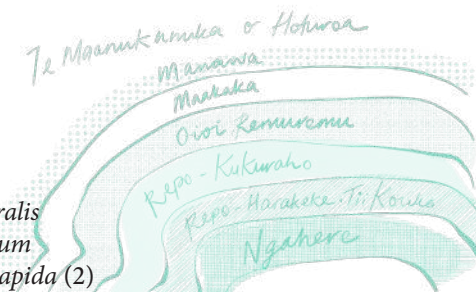 Te Maanukanuka o Hoturoa
Manawa
Maakaka
Oioi Remuremu
Repo - Kukuraho
Repo - Harakeke - Tii Kouka
Ngahere
ralis
um
apida (2)